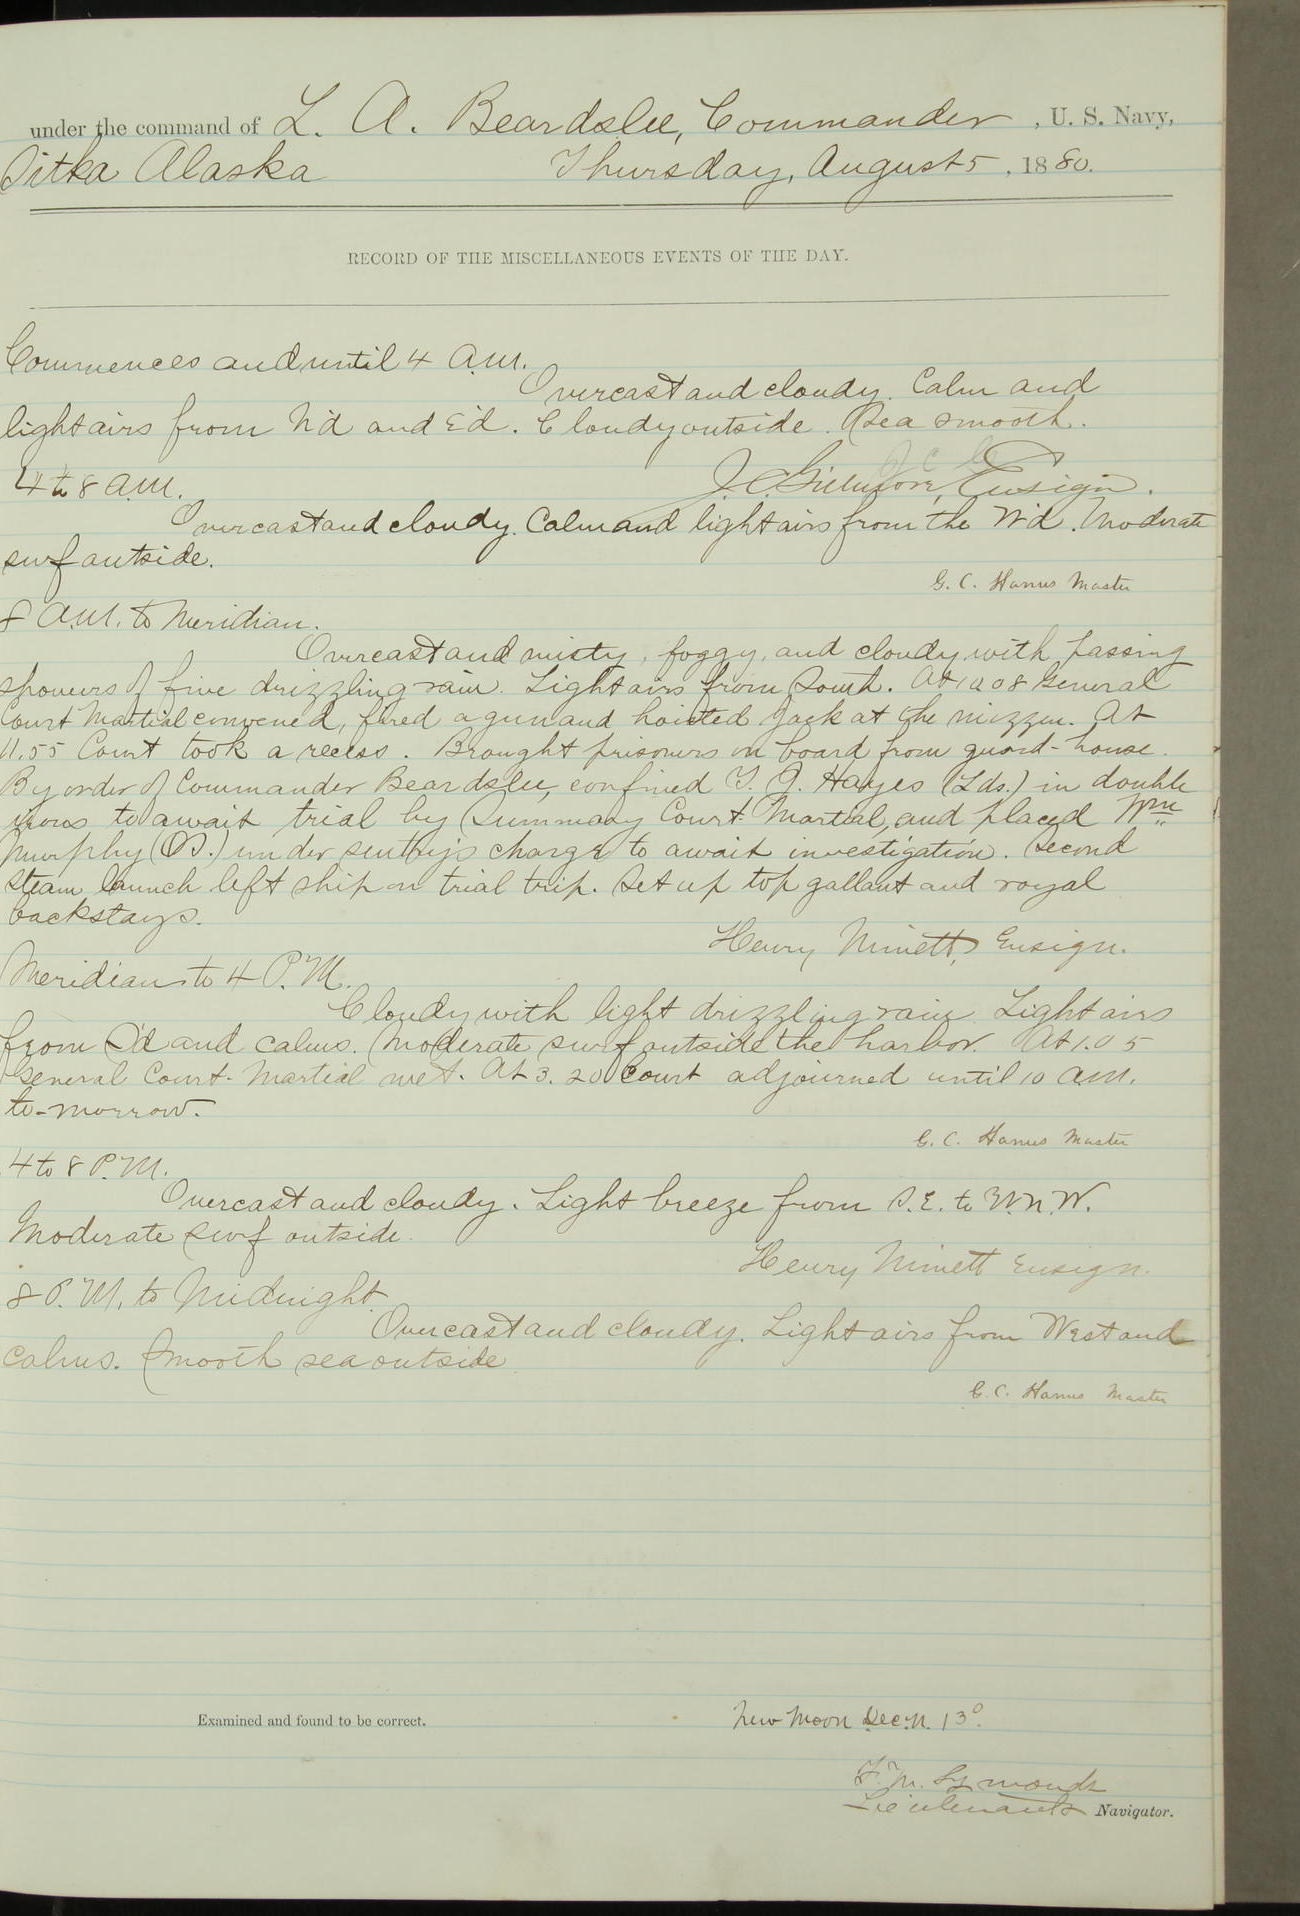 under the command of L. A. Beardslee, Commander, U. S. Navy,
Sitka Alaska Thursday, August 5, 1880.
RECORD OF THE MISCELLANEOUS EVENTS OF THE DAY.
Commences and until 4 A.M.
Overcast and cloudy. Calm and
light airs from N'd and E'd. Cloudy outside. Sea smooth.
J. C. Gillmore, Ensign.
4 to 8 A.M.
Overcast and cloudy. Calm and light airs from the N'd. Moderate
surf outside.
G. C. Hanus Master
8 A.M. to Meridian.
Overcast and misty, foggy, and cloudy with passing
showers of fine drizzling rain. Light airs from South. At 10 08 General
Court Martial convened, fired a gun and hoisted Jack at the mizzen. At
11.55 Court took a recess. Brought prisoners on board from guard-house.
By order of Commander Beardslee, confined T. J. Hayes (Lds.) in double
irons to await trial by Summary Court Martial, and placed Wm
Murphy (OS.) under sentry's charge to await investigation. Second
steam launch left ship on trial trip. Set up top gallant and royal
backstays.
Henry Minett, Ensign.
Meridian to 4 P.M.
Cloudy with light drizzling rain. Light airs
from S'd and calms. Moderate surf outside the harbor. At 1.05
General Court-Martial met. At 3.20 Court adjourned until 10 A.M.
to-morrow.
G. C. Hanus Master
4 to 8 P.M.
Overcast and cloudy. Light breeze from S.E. to W.N.W.
Moderate surf outside.
Henry Minett Ensign.
8 P.M. to Midnight.
Overcast and cloudy. Light airs from West and
calms. Smooth sea outside
G. C. Hanus Master
Examined and found to be correct.
New Moon Dec. N. 13°.
F. M. Symonds
Lieutenant Navigator.